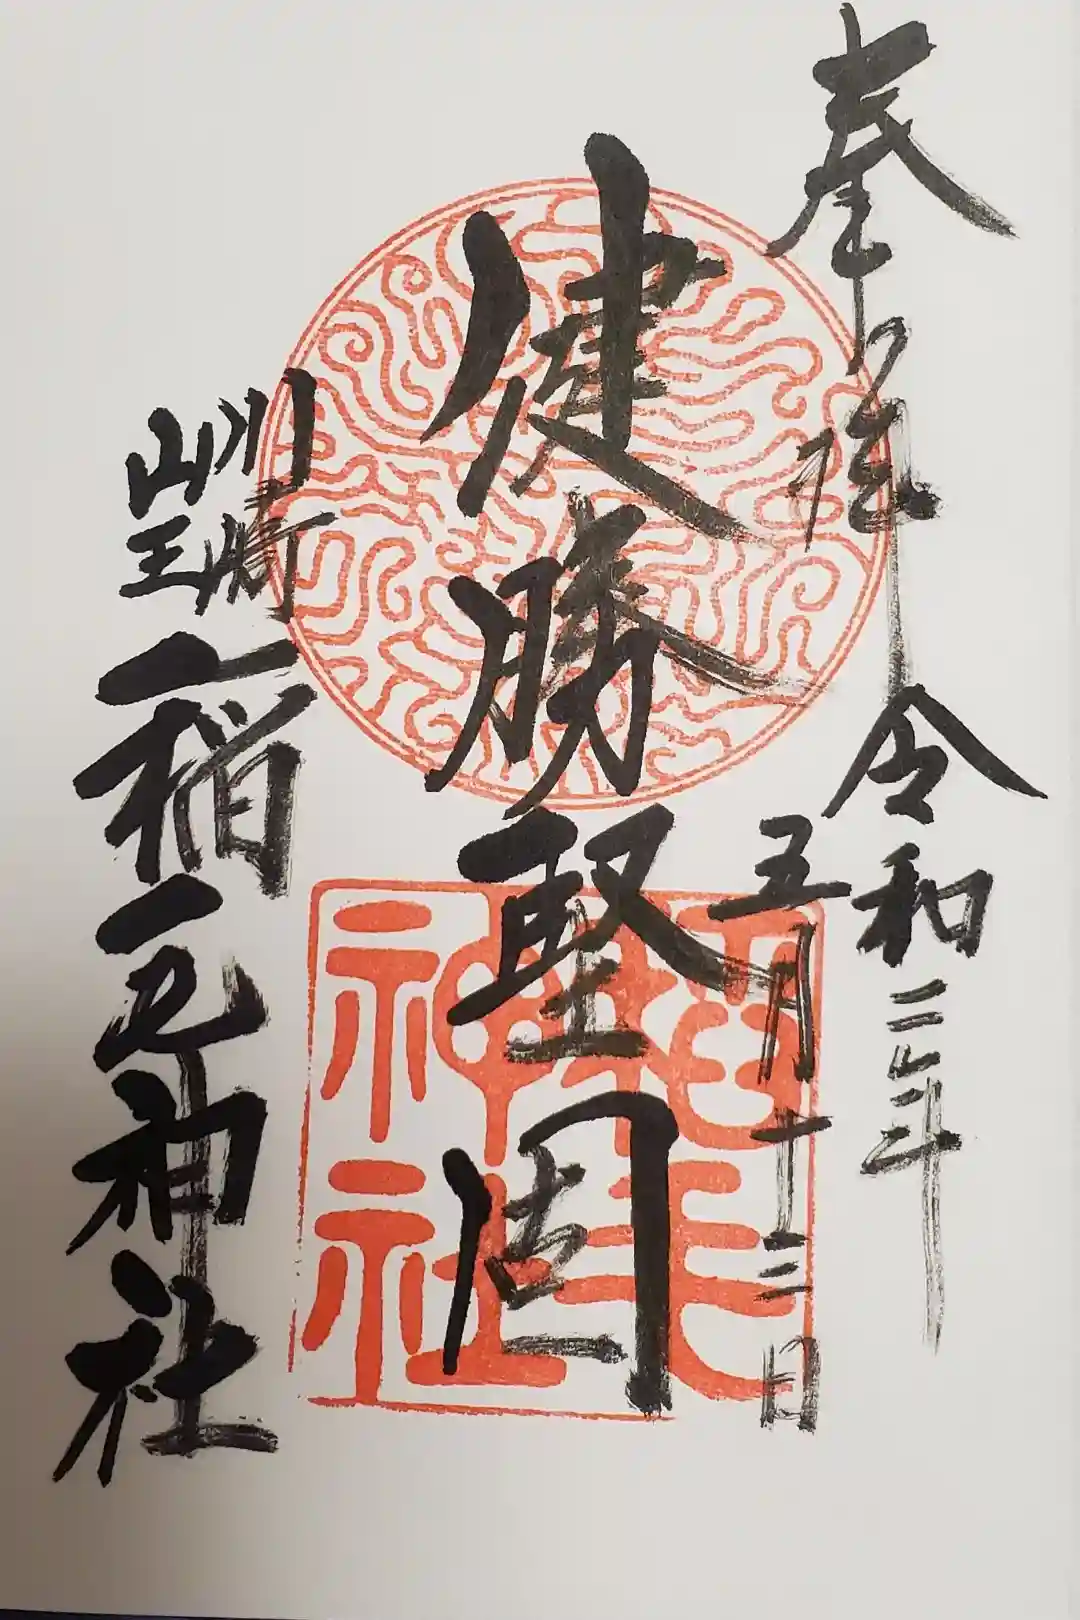 奉拝
令和二年
五月十三日
健勝堅固
川崎
山王
稲毛神社
稲毛
神社